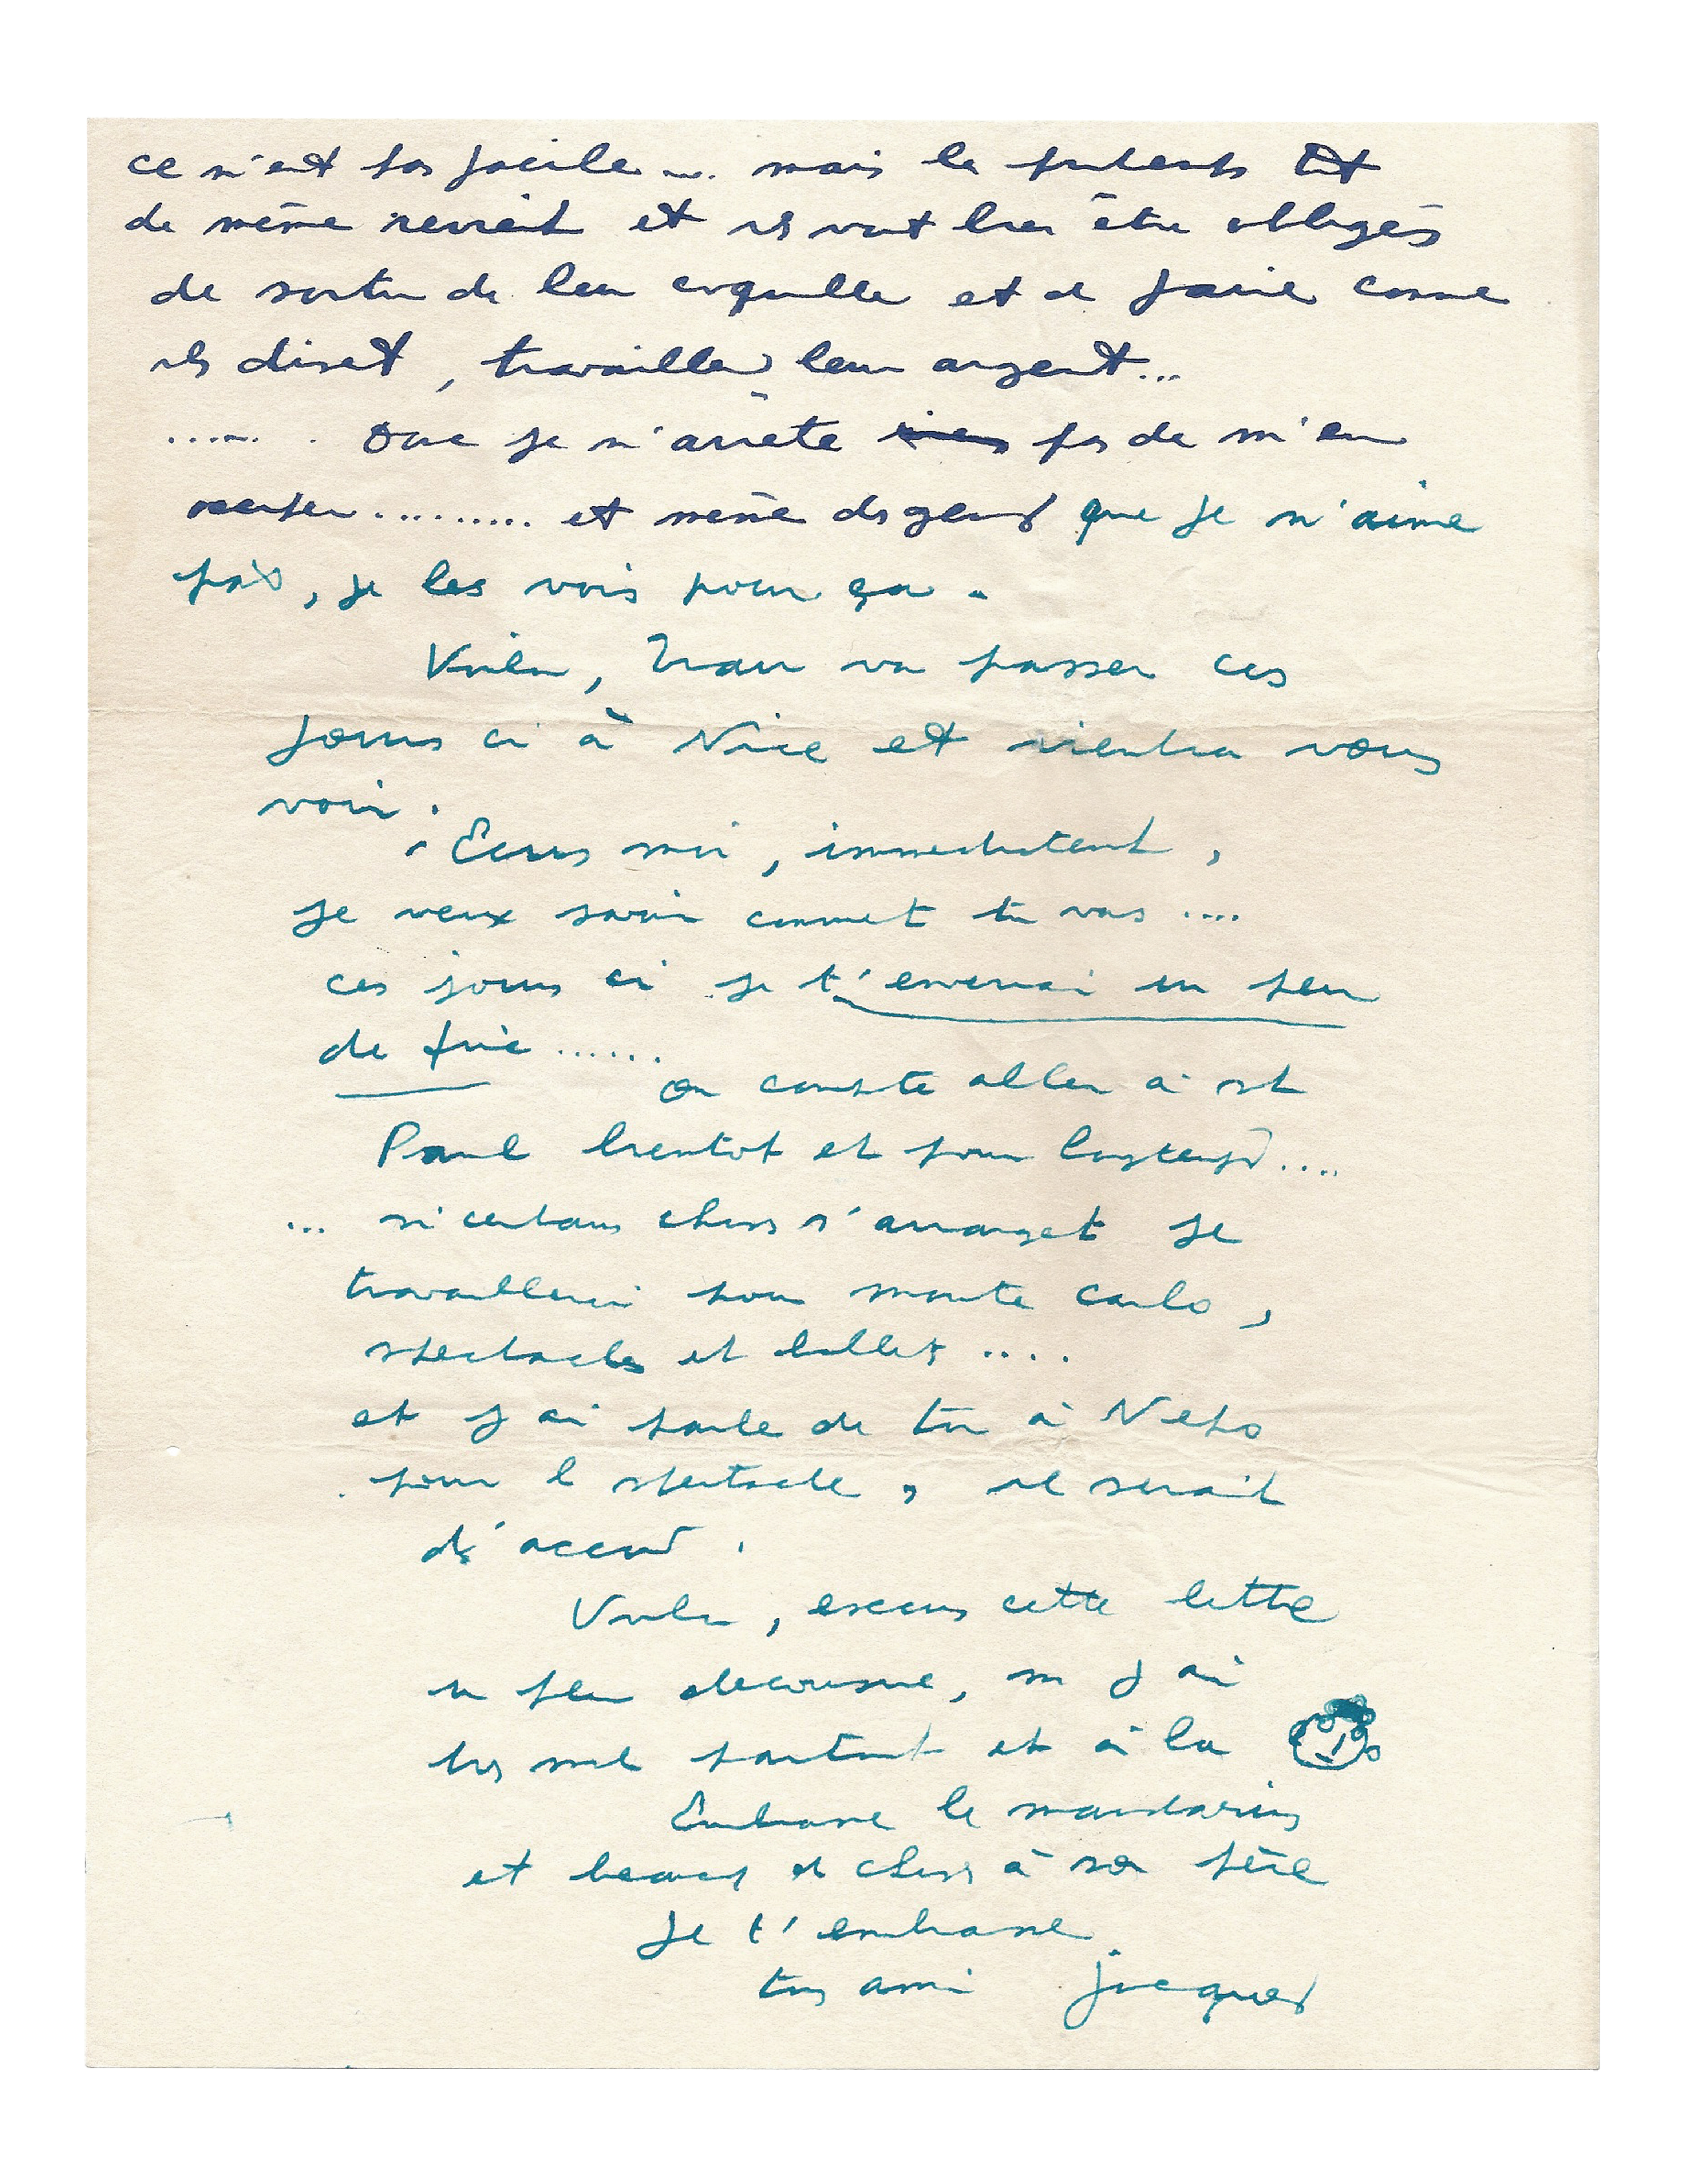 ce n'est pas facile .... mais le printemps tt
de même revient et ils vont bien être obligés
de sortir de leur coquille et de faire comme
ils disent, travailler leur argent...
...... Donc je n'arrête pas de m'en
occuper ......... et même des gens que je n'aime
pas, je les vois pour ça.
Voilà, va passer ces
jours ci à Nice et viendra vous
voir.
Ecris moi, immediatement,
je veux savoir comment tu vas ....
ces jours ci je t'enverrai un peu
de fric ......
on compte aller à st
Paul bientot et pour longtemps ....
... si certaines choses s'arrangent je
travaillerai pour monte carlo,
spectacles et ballets ....
et j'ai parlé de toi à
pour le spectacle, il serait
d'accord.
Voilà, excuse cette lettre
un peu decousue, j'ai
très mal partout et à la
Embrasse le mandarin
et beaucoup de choses à son père
Je t'embrasse
ton ami jacques